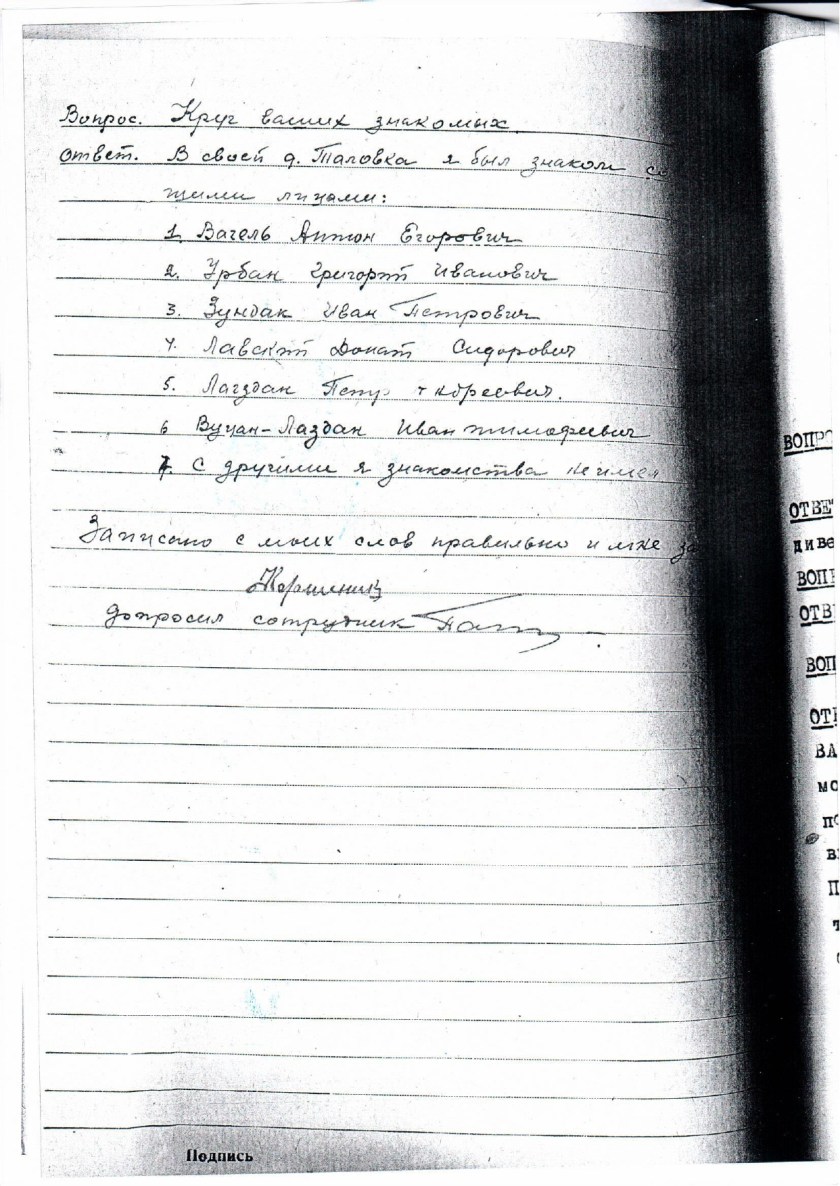 Вопрос. Круг ваших знакомых.
Ответ. В своей д. Таловка я был знаком
щими лицами:
1. Вагель Антон Егорович
2. Урбан Григорий Иванович
3. Зундак Иван Петрович
4. Лавский Донат Сидорович
5. Лагздан Петр
6 Вуцан-Лаздан Иван Тимофеевич
7. С другими я знакомства не имел
Записано с моих слов правильно и мне
допросил сотрудник
Подпись
ВОПРО
ОТВЕТ
диве
ВОП
ОТВ
ВОП
ОТ
ВА
мо
по
в
П